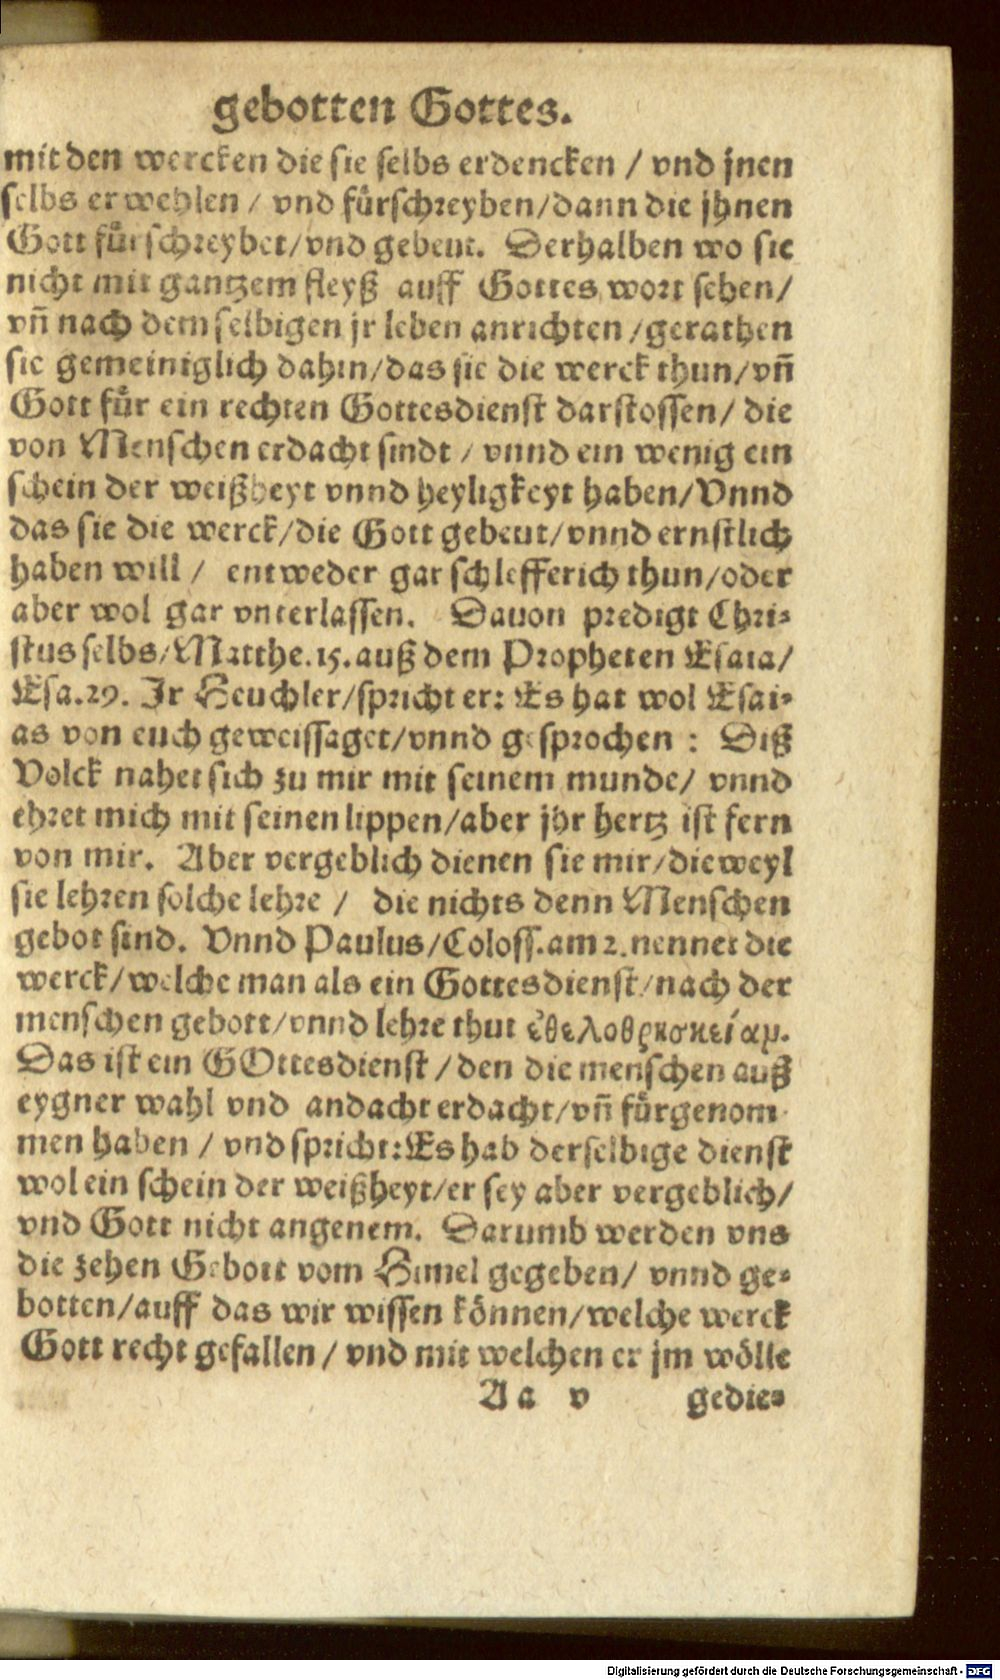 gebotten Gottes.
mit den wercken die sie selbs erdencken / vnd jnen
selbs erwehlen / vnd fürschreyben/dann die jhnen
Gott fürschreybet/vnd gebeut. Derhalben wo sie
nicht mit gantzem fleyß auff Gottes wort sehen/
vñ nach demselbigen jr leben anrichten /gerathen
sie gemeiniglich dahin/das sie die werck thun/vñ
Gott für ein rechten Gottesdienst darstossen/ die
von Menschen erdacht sindt / vnnd ein wenig ein
schein der weißheyt vnnd heyligkeyt haben/Vnnd
das sie die werck/die Gott gebeut/vnnd ernstlich
haben will / entweder gar schlefferich thun/oder
aber wol gar vnterlassen. Dauon predigt Chri-
stus selbs/Matthe.15.auß dem Propheten Esaia/
Esa.29. Jr Heuchler/spricht er: Es hat wol Esai-
as von euch geweissaget/vnnd gesprochen : Diß
Volck nahet sich zu mir mit seinem munde/ vnnd
ehret mich mit seinen lippen/aber jhr hertz ist fern
von mir. Aber vergeblich dienen sie mir/dieweyl
sie lehren solche lehre / die nichts denn Menschen
gebot sind. Vnnd Paulus/Coloss.am 2.nennet die
werck/welche man als ein Gottesdienst/nach der
menschen gebott/vnnd lehre thut ἐθελοθρησκείαμ.
Das ist ein GOttesdienst /den die menschen auß
eygner wahl vnd andacht erdacht/vñ fürgenom-
men haben / vnd spricht:Es hab derselbige dienst
wol ein schein der weißheyt/er sey aber vergeblich/
vnd Gott nicht angenem. Darumb werden vns
die zehen Gebott vom Himel gegeben/ vnnd ge-
botten/auff das wir wissen können/welche werck
Gott recht gefallen / vnd mit welchen er jm wölle
Aa v gedie-
Digitalisierung gefördert durch die Deutsche Forschungsgemeinschaft - DFG